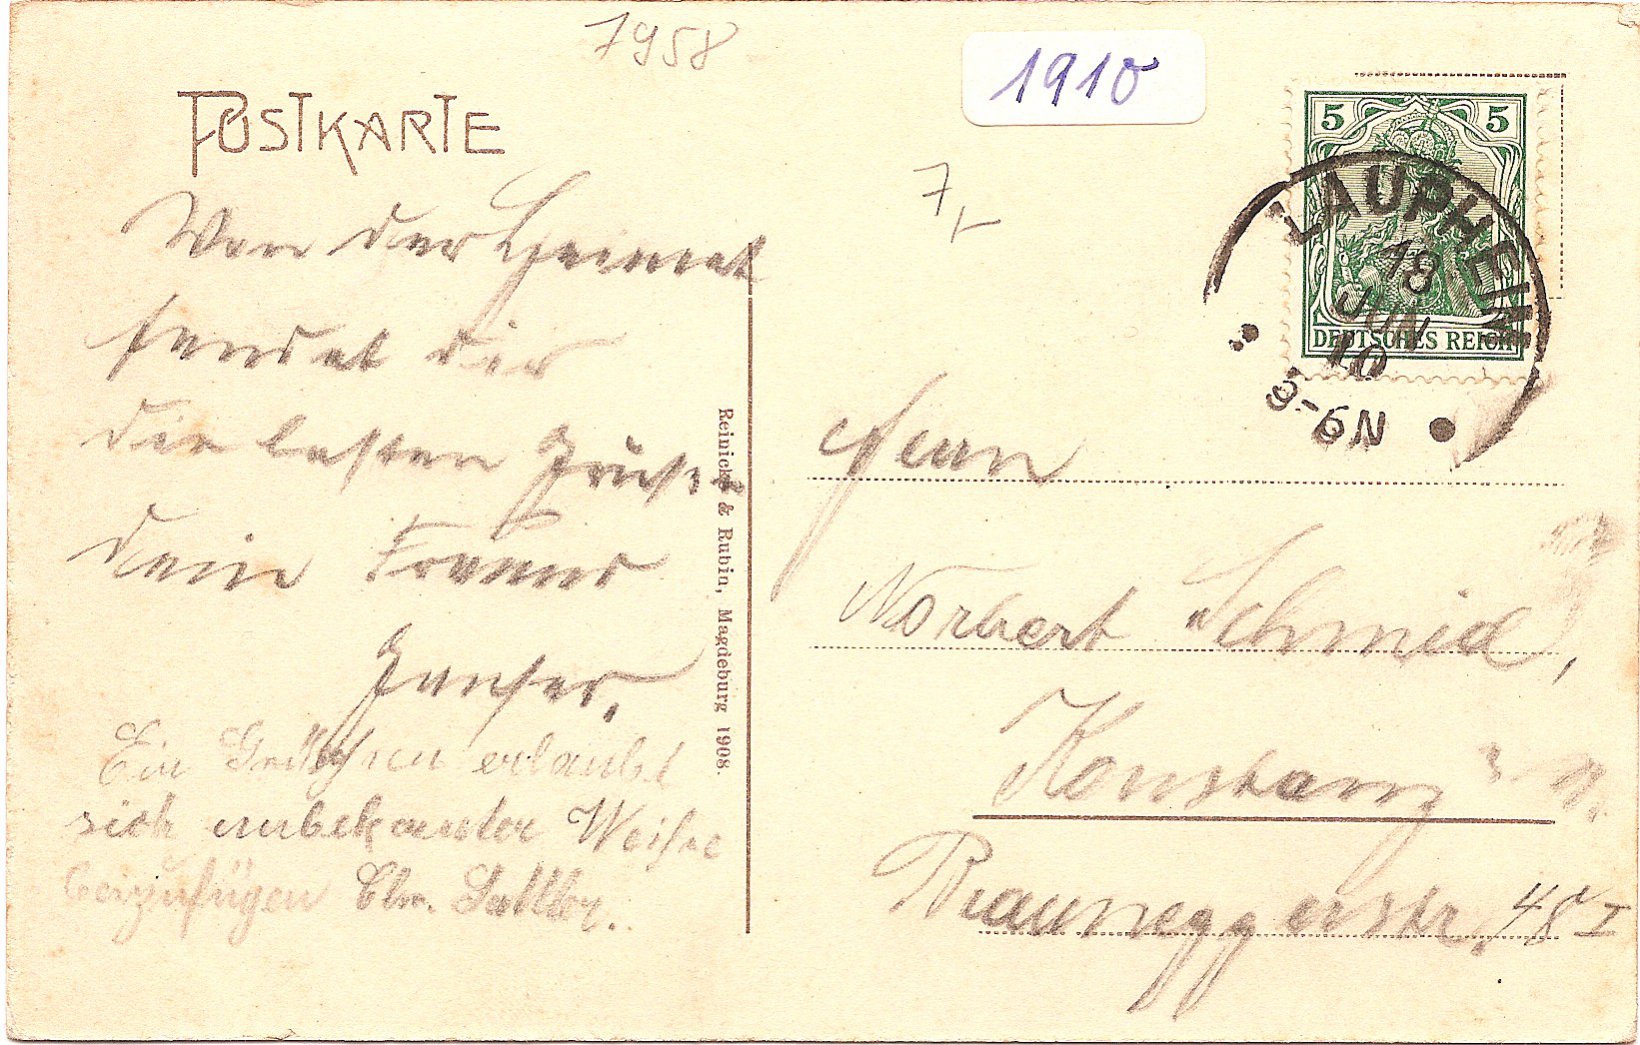 7958
1910
POSTKARTE
7,-
5 5
DEUTSCHES REICH
LAUPHEIM
18
JUN
10
5-6N
Von der Heimat
sendet dir
die besten Grüße
dein Freund
Ein Grüßchen erlaubt
sich unbekannter Weise
beizufügen Chr. Sattler.
Reinicke & Rubin, Magdeburg 1908.
Herrn
Norbert Schmid,
Konstanz
Brauneggerstr. 48 I